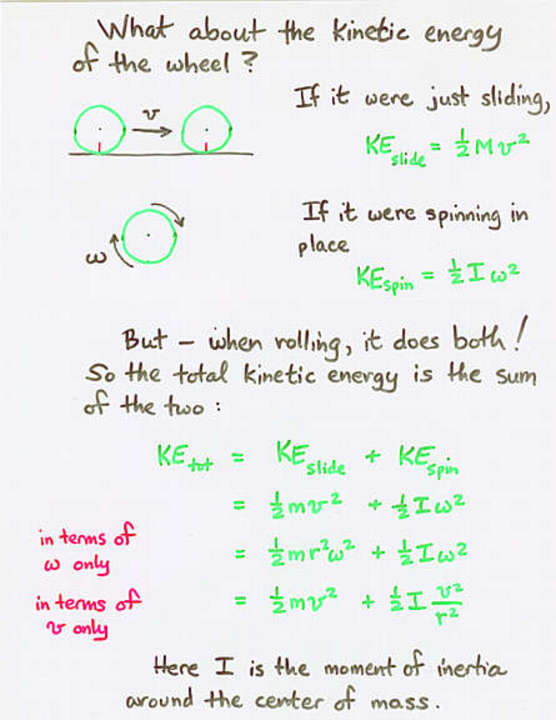 What about the kinetic energy
of the wheel ?
If it were just sliding,
v
KE slide = ½ M v²
If it were spinning in
place
ω
KE spin = ½ I ω²
But – when rolling, it does both !
So the total kinetic energy is the sum
of the two :
KE tot = KE slide + KE spin
= ½ m v² + ½ I ω²
in terms of
ω only
= ½ m r² ω² + ½ I ω²
in terms of
v only
= ½ m v² + ½ I v²/r²
Here I is the moment of inertia
around the center of mass.